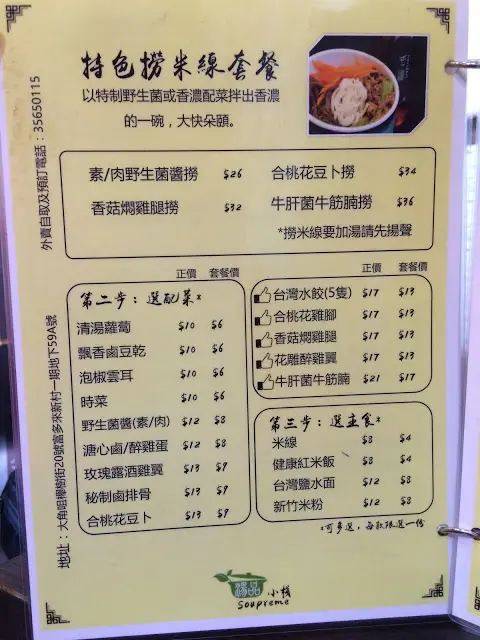 特色撈米線套餐
以特制野生菌或香濃配菜拌出香濃
的一碗，大快朵頤。
外賣自取及預訂電話：35650115
素/肉野生菌醬撈 $26 合桃花豆卜撈 $34
香菇燜雞腿撈 $32 牛肝菌牛筋腩撈 $36
*撈米線要加湯請先揚聲
正價 套餐價
第二步：選配菜*
清湯蘿蔔 $10 $6
飄香鹵豆乾 $10 $6
泡椒雲耳 $10 $6
時菜 $10 $6
野生菌醬(素/肉) $12 $8
溏心鹵/醉雞蛋 $12 $8
玫瑰露酒雞翼 $13 $9
秘制鹵排骨 $13 $9
合桃花豆卜 $13 $9
正價 套餐價
台灣水餃(5隻) $17 $13
合桃花雞腳 $17 $13
香菇燜雞腿 $17 $13
花雕醉雞翼 $17 $13
牛肝菌牛筋腩 $21 $17
第三步：選主食*
米線 $8 $4
健康紅米飯 $8 $4
台灣鹽水面 $12 $8
新竹米粉 $12 $8
*可多選，每款限選一份
地址：大角咀櫸樹街20號富多來新村一期地下59A號
湯品小棧
Soupreme